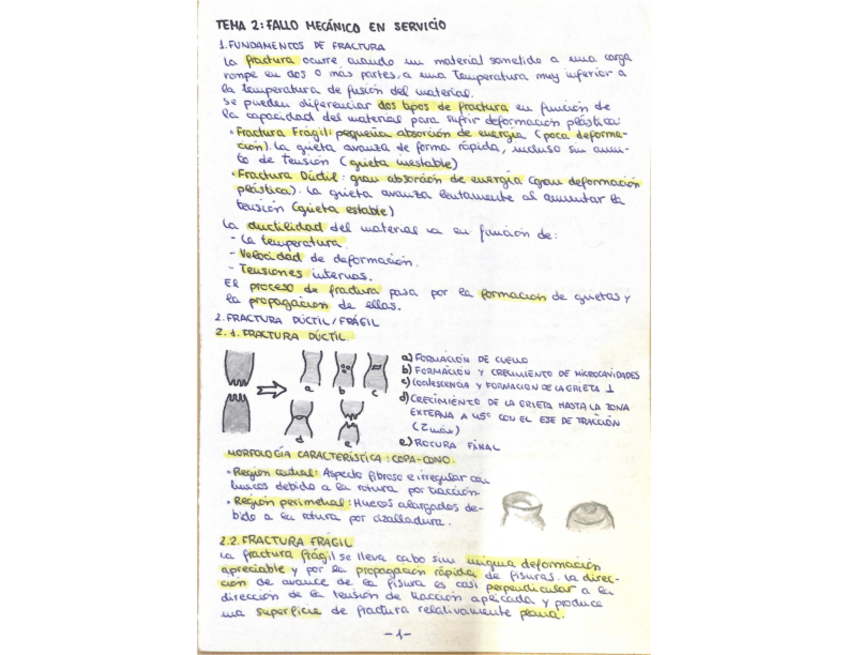 TEMA 2: FALLO MECÁNICO EN SERVICIO
1. FUNDAMENTOS DE FRACTURA
La fractura ocurre cuando un material sometido a una carga
rompe en dos o más partes, a una temperatura muy inferior a
la temperatura de fusión del material.
Se pueden diferenciar dos tipos de fractura en función de
la capacidad del material para sufrir deformación plástica:
• Fractura Frágil: pequeña absorción de energía (poca deforma-
ción). La grieta avanza de forma rápida, incluso sin aumen-
to de tensión (grieta inestable)
• Fractura Dúctil: gran absorción de energía (gran deformación
plástica). La grieta avanza lentamente al aumentar la
tensión (grieta estable)
La ductilidad del material va en función de:
- La temperatura.
- Velocidad de deformación.
- Tensiones internas.
El proceso de fractura pasa por la formación de grietas y
la propagación de ellas.
2. FRACTURA DÚCTIL/FRÁGIL
2.1. FRACTURA DÚCTIL.
a) FORMACIÓN DE CUELLO
b) FORMACIÓN Y CRECIMIENTO DE MICROCAVIDADES
c) COALESCENCIA Y FORMACION DE LA GRIETA ⊥
d) CRECIMIENTO DE LA GRIETA HASTA LA ZONA
EXTERNA A 45º CON EL EJE DE TRACCIÓN
(τ máx)
e) ROTURA FINAL
a b c
d e
MORFOLOGÍA CARACTERÍSTICA: COPA-CONO.
• Región central: Aspecto fibroso e irregular con
huecos debido a la rotura por tracción.
• Región perimetral: Huecos alargados de-
bido a la rotura por cizalladura.
2.2. FRACTURA FRÁGIL
La fractura frágil se lleva cabo sin ninguna deformación
apreciable y por la propagación rápida de fisuras. La direc-
ción de avance de la fisura es casi perpendicular a la
dirección de la tensión de tracción aplicada y produce
una superficie de fractura relativamente plana.
-1-